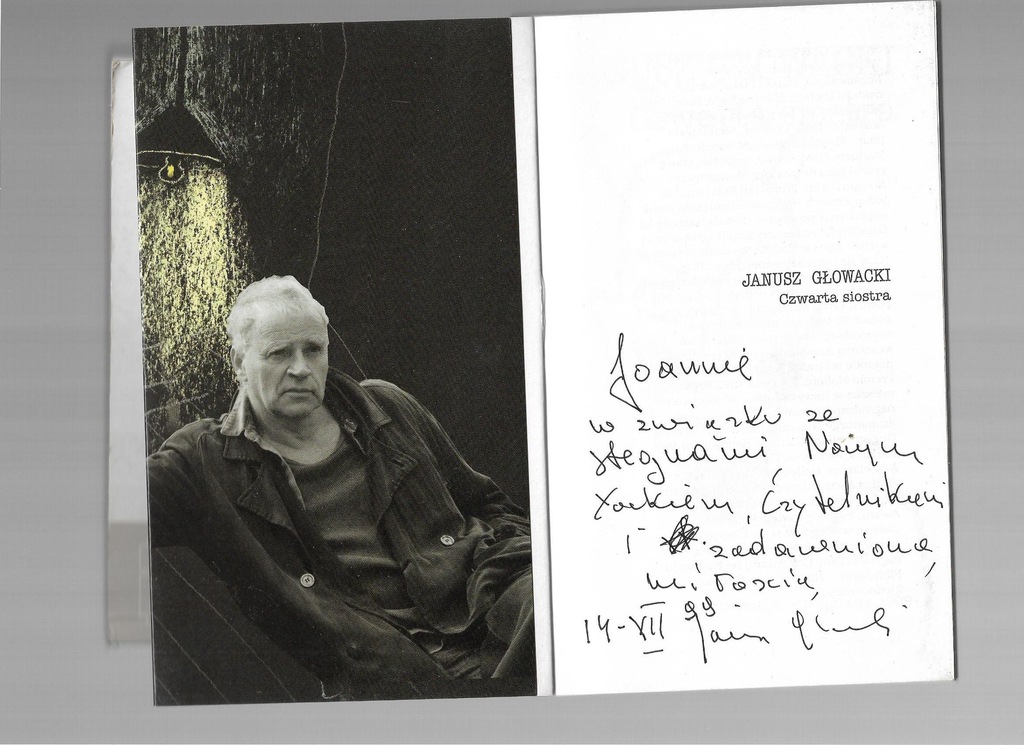 JANUSZ GŁOWACKI
Czwarta siostra
Joannie
w związku ze
stegnami, Nowym
Yorkiem, Czytelnikiem
i zadawnioną
miłością
14-VII 99